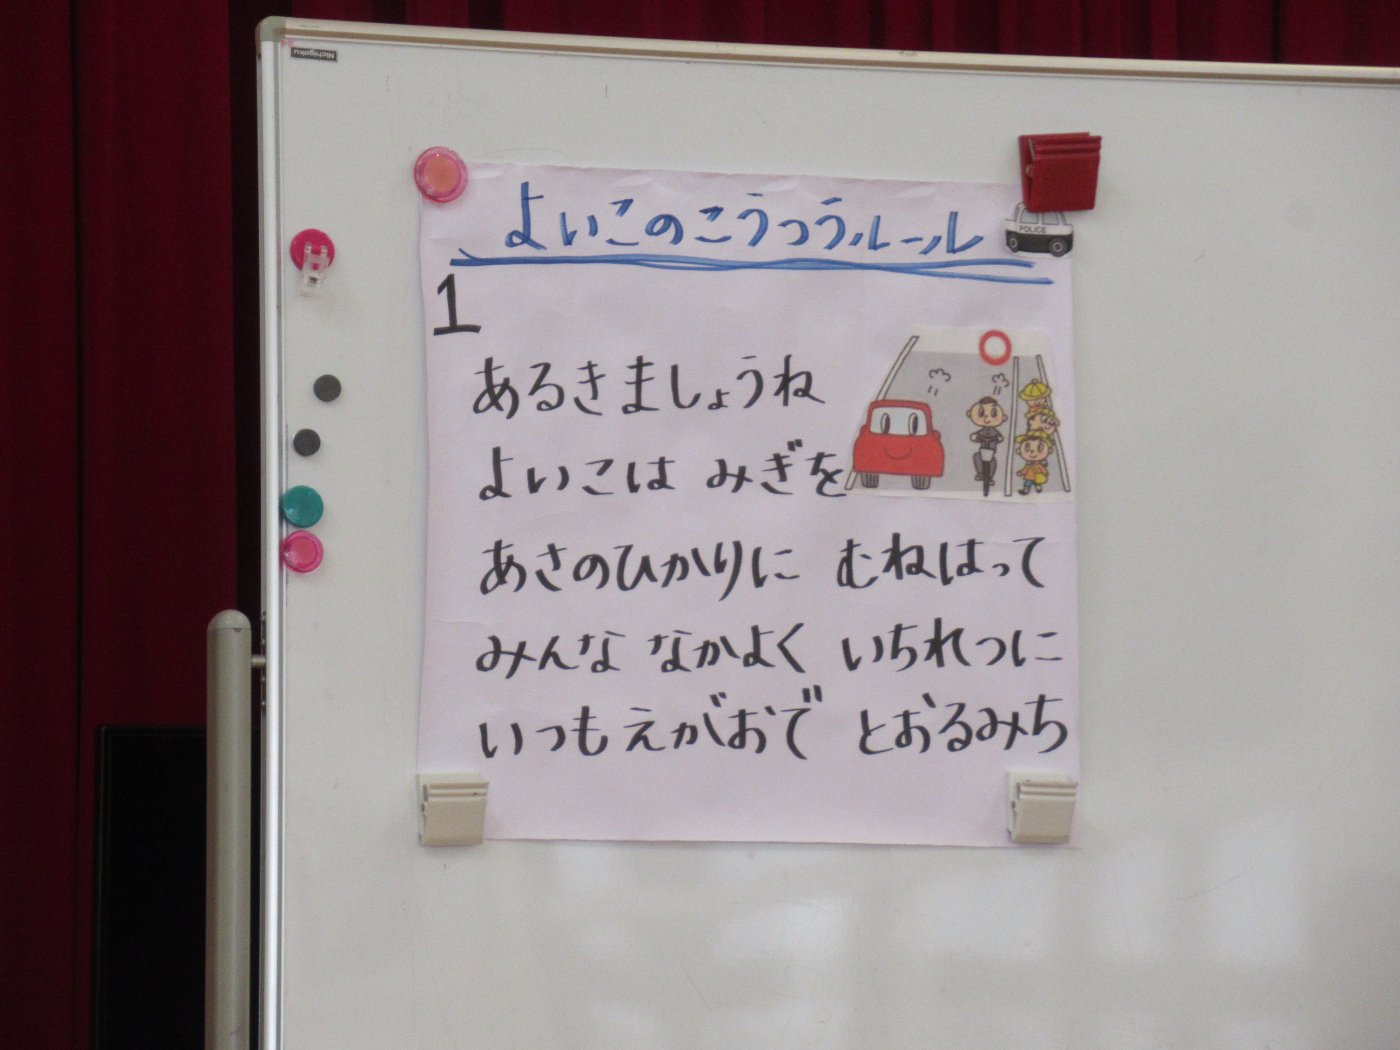 Nichigaku
よいこのこうつうルール
POLICE
1
あるきましょうね
よいこは みぎを
あさのひかりに むねはって
みんな なかよく いちれつに
いつもえがおで とおるみち